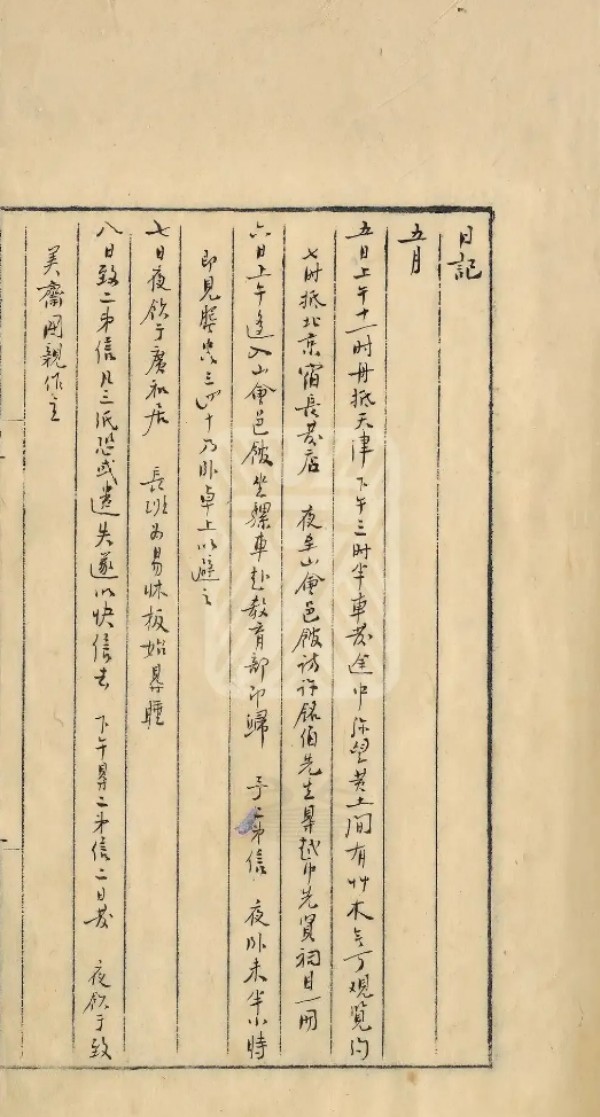 日記
五月
五日上午十一时舟抵天津 下午三时半車發途中弥望黄土間有艸木无可观覽约
七时抵北京宿長發店 夜至山會邑館訪許銘伯先生㝵越中先賢祠目一冊
六日上午迻入山會邑館 坐騾車赴教育部即歸 予二弟信 夜卧未半小時
即見蜰蟲三四十乃卧卓上以避之
七日夜飲于廣和居 長班为易牀板始㝵睡
八日致二弟信凡三紙恐或遺失遂以快信去 下午㝵二弟信二日發 夜飲于致
美齋国親作主